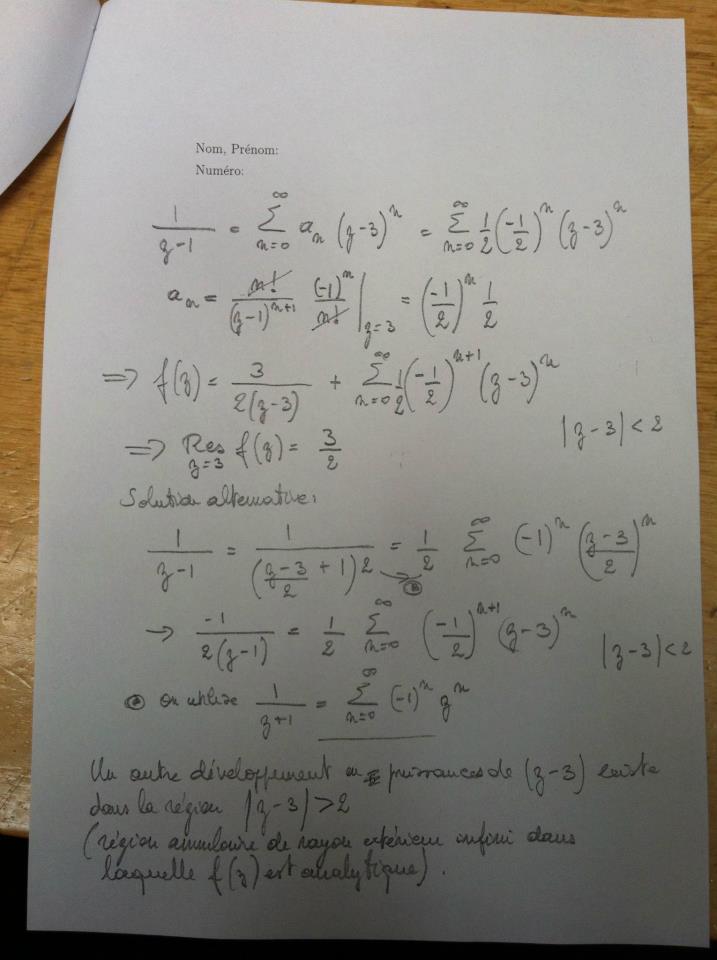 Nom, Prénom:
Numéro:
1/(z-1) = ∑_{n=0}^{∞} a_n (z-3)^n = ∑_{n=0}^{∞} 1/2 (-1/2)^n (z-3)^n
a_n = n!/(z-1)^{n+1} (-1)^n/n! |_{z=3} = (-1/2)^n 1/2
⇒ f(z) = 3/(2(z-3)) + ∑_{n=0}^{∞} 1/2 (-1/2)^{n+1} (z-3)^n
|z-3| < 2
⇒ Res_{z=3} f(z) = 3/2
Solution alternative:
1/(z-1) = 1/(((z-3)/2 + 1) 2) = 1/2 ∑_{n=0}^{∞} (-1)^n ((z-3)/2)^n
→ -1/(2(z-1)) = 1/2 ∑_{n=0}^{∞} (-1/2)^{n+1} (z-3)^n
|z-3| < 2
on utilise 1/(z+1) = ∑_{n=0}^{∞} (-1)^n z^n
Un autre développement en puissances de (z-3) existe
dans la région |z-3| > 2
(région annulaire de rayon extérieur infini dans
laquelle f(z) est analytique).